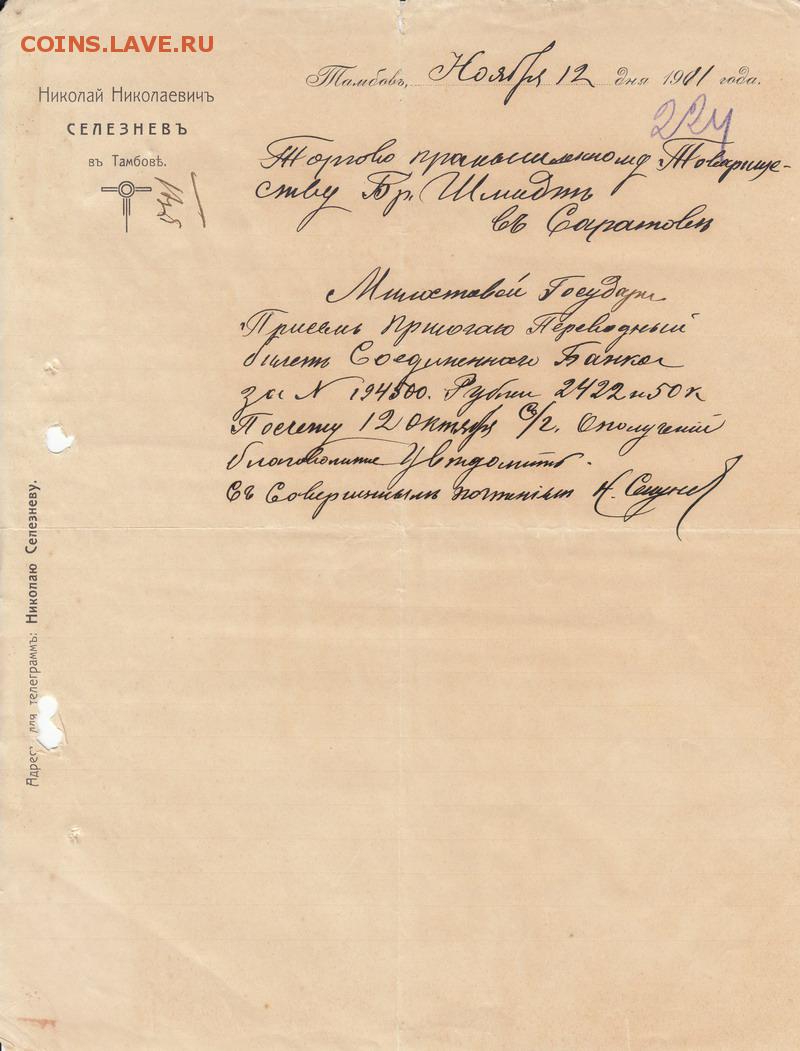 COINS.LAVE.RU
Николай Николаевичъ
СЕЛЕЗНЕВЪ
въ Тамбовѣ.
Тамбовъ, Ноября 12 дня 1911 года.
224
Торгово промышленному Товарище-
ству Бр. Шмидтъ
въ Саратовѣ
Милостивый Государи
При семъ прилогаю Переводный
билетъ Соединеннаго Банка
за N 194500. Рубли 2422 и 50 к
По счету 12 октября с/г. О получении
благоволите Уведомить.
Съ Совершеннымъ почтениемъ Н. Селезнев
Адресъ для телеграммъ: Николаю Селезневу.